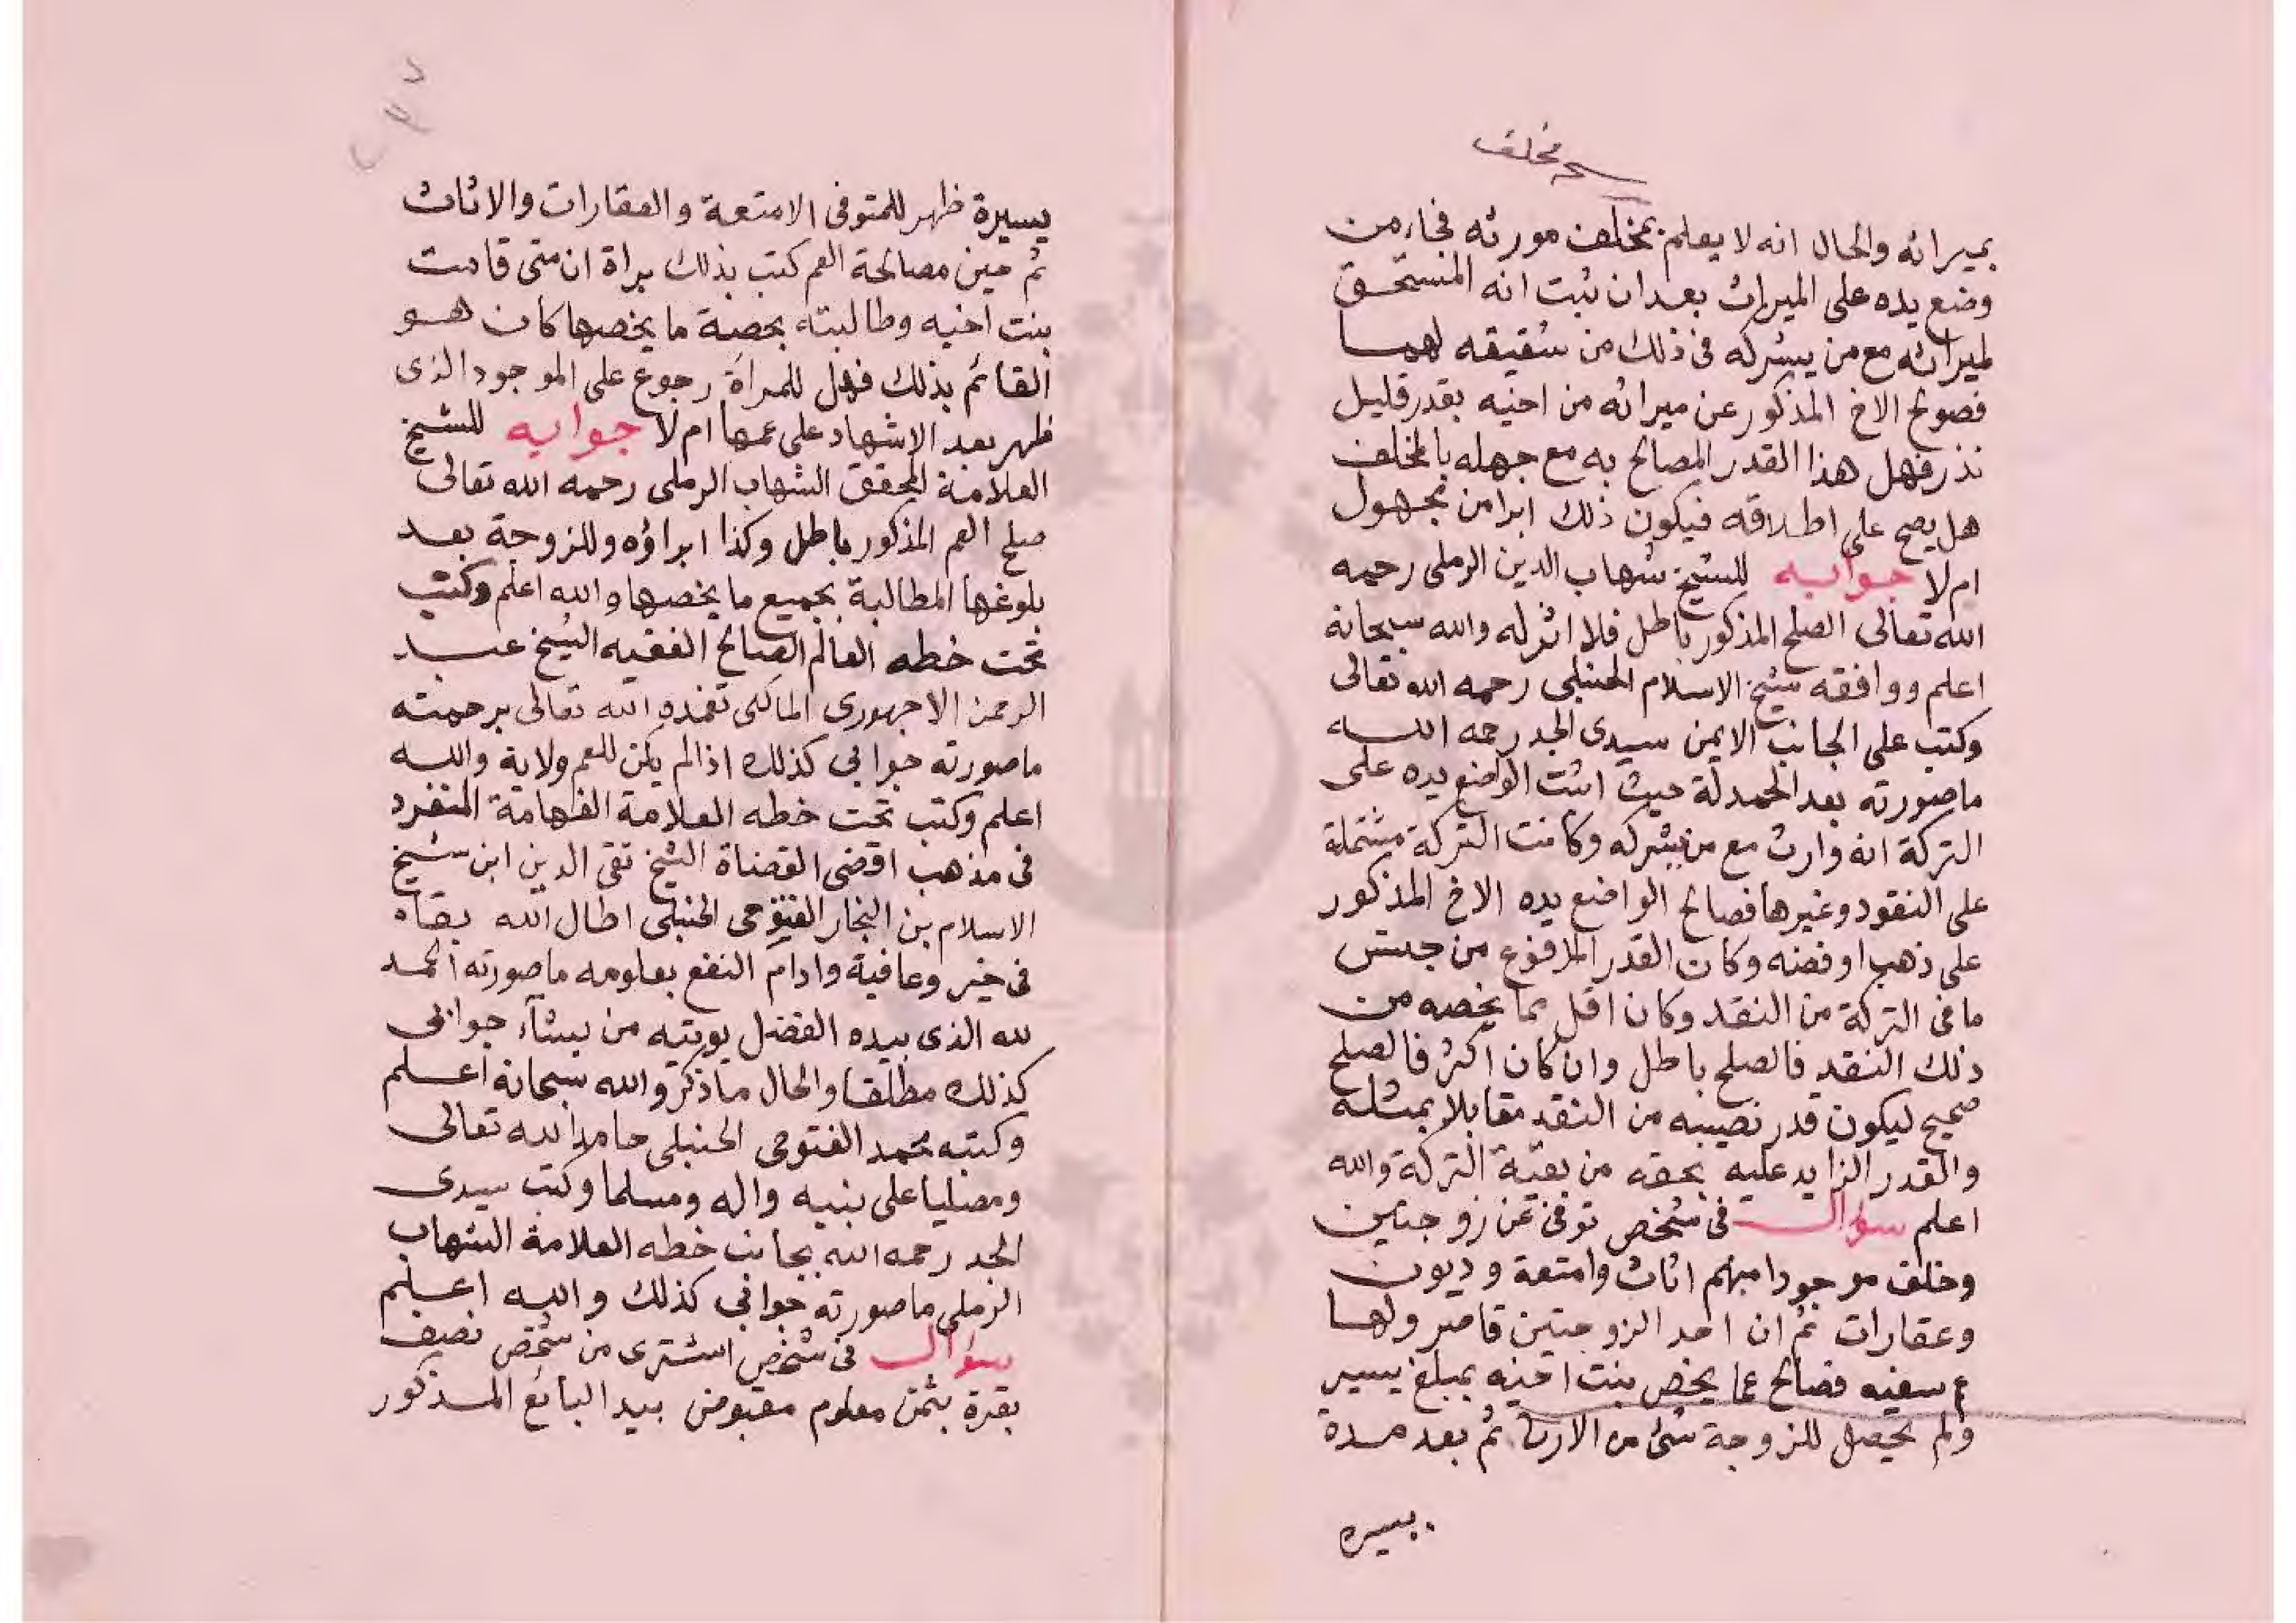 مخلف
بميراثه والحال انه لا يعلم بمخلف مورثه فجاء من
وضع يده على الميراث بعد ان ثبت انه المستحق
لميراثه مع من يشركه فى ذلك من شقيقه لهما
فصولح الاخ المذكور عن ميراثه من اخيه بقدر قليل
نذر فهل هذا القدر المصالح به مع جهله بالمخلف
هل يصح على اطلاقه فيكون ذلك ابرا من مجهول
ام لا جوابه للشيخ شهاب الدين الرملى رحمه
الله تعالى الصلح المذكور باطل فلا اثر له والله سبحانه
اعلم ووافقه شيخ الاسلام الحنبلى رحمه الله تعالى
وكتب على الجانب الايمن سيدى الجد رحمه الله
ما صورته بعد الحمدلة حيث اثبت الواضع يده على
التركة انه وارث مع من يشركه وكانت التركة مشتملة
على النقود وغيرها فصالح الواضع يده الاخ المذكور
على ذهب او فضه وكان القدر المدفوع من جنس
ما فى التركة من النقد وكان اقل مما يخصه من
ذلك النقد فالصلح باطل وان كان اكثر فالصلح
صحيح ليكون قدر نصيبه من النقد مقابلا بمثله
والقدر الزايد عليه بحقه من بقية التركة والله
اعلم سؤال فى شخص توفى عن زوجتين
وخلف موجودا مبهم اثاث وامتعة وديون
وعقارات ثم ان احد الزوجتين قاصر ولها
عم سفيه فصالح عما يخص بنت اخيه بمبلغ يسير
ولم يحصل للزوجة شئ من الارث ثم بعد مدة
يسيره
يسيرة ظهر للمتوفى الامتعة والعقارات والاثاث
ثم حين مصالحة العم كتب بذلك براة ان متى قامت
بنت اخيه وطالبته بحصة ما يخصها كان هو
القائم بذلك فهل للمراة رجوع على الموجود الذى
ظهر بعد الاشهاد على عمها ام لا جوابه للشيخ
العلامة المحقق الشهاب الرملى رحمه الله تعالى
صلح العم المذكور باطل وكذا ابراؤه وللزوجة بعد
بلوغها المطالبة بجميع ما يخصها والله اعلم وكتب
تحت خطه العالم الصالح الفقيه الشيخ عبد
الرحمن الاجهورى المالكى تغمده الله تعالى برحمته
ما صورته جوابى كذلك اذا لم يكن للعم ولاية والله
اعلم وكتب تحت خطه العلامة الفهامة المنفرد
فى مذهب اقضى القضاة الشيخ تقى الدين ابن شيخ
الاسلام بن النجار الفتوحى الحنبلى اطال الله بقاه
فى خير وعافية وادام النفع بعلومه ما صورته الحمد
لله الذى بيده الفضل يوتيه من يشآء جوابى
كذلك مطلقا والحال ما ذكر والله سبحانه اعلم
وكتبه محمد الفتوحى الحنبلى حامدا لله تعالى
ومصليا على نبيه واله ومسلما وكتب سيدى
الجد رحمه الله بجانب خطه العلامة الشهاب
الرملى ما صورته جوابى كذلك والله اعلم
سؤال فى شخص اشترى من شخص نصف
بقرة بثمن معلوم مقبوض بيد البائع المذكور